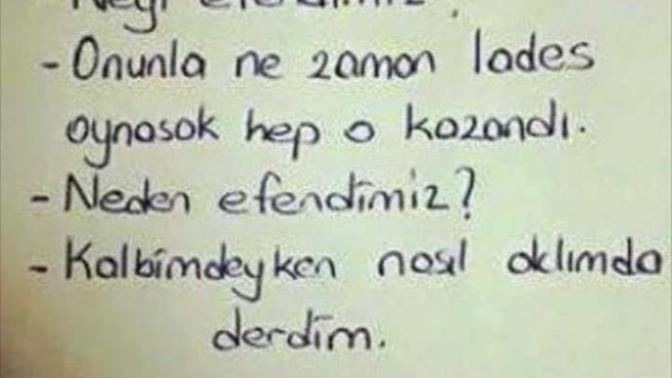 Neyi efendimiz?
- Onunla ne zaman lades
oynasak hep o kazandı.
- Neden efendimiz?
- Kalbimdeyken nasıl aklımda
derdim.